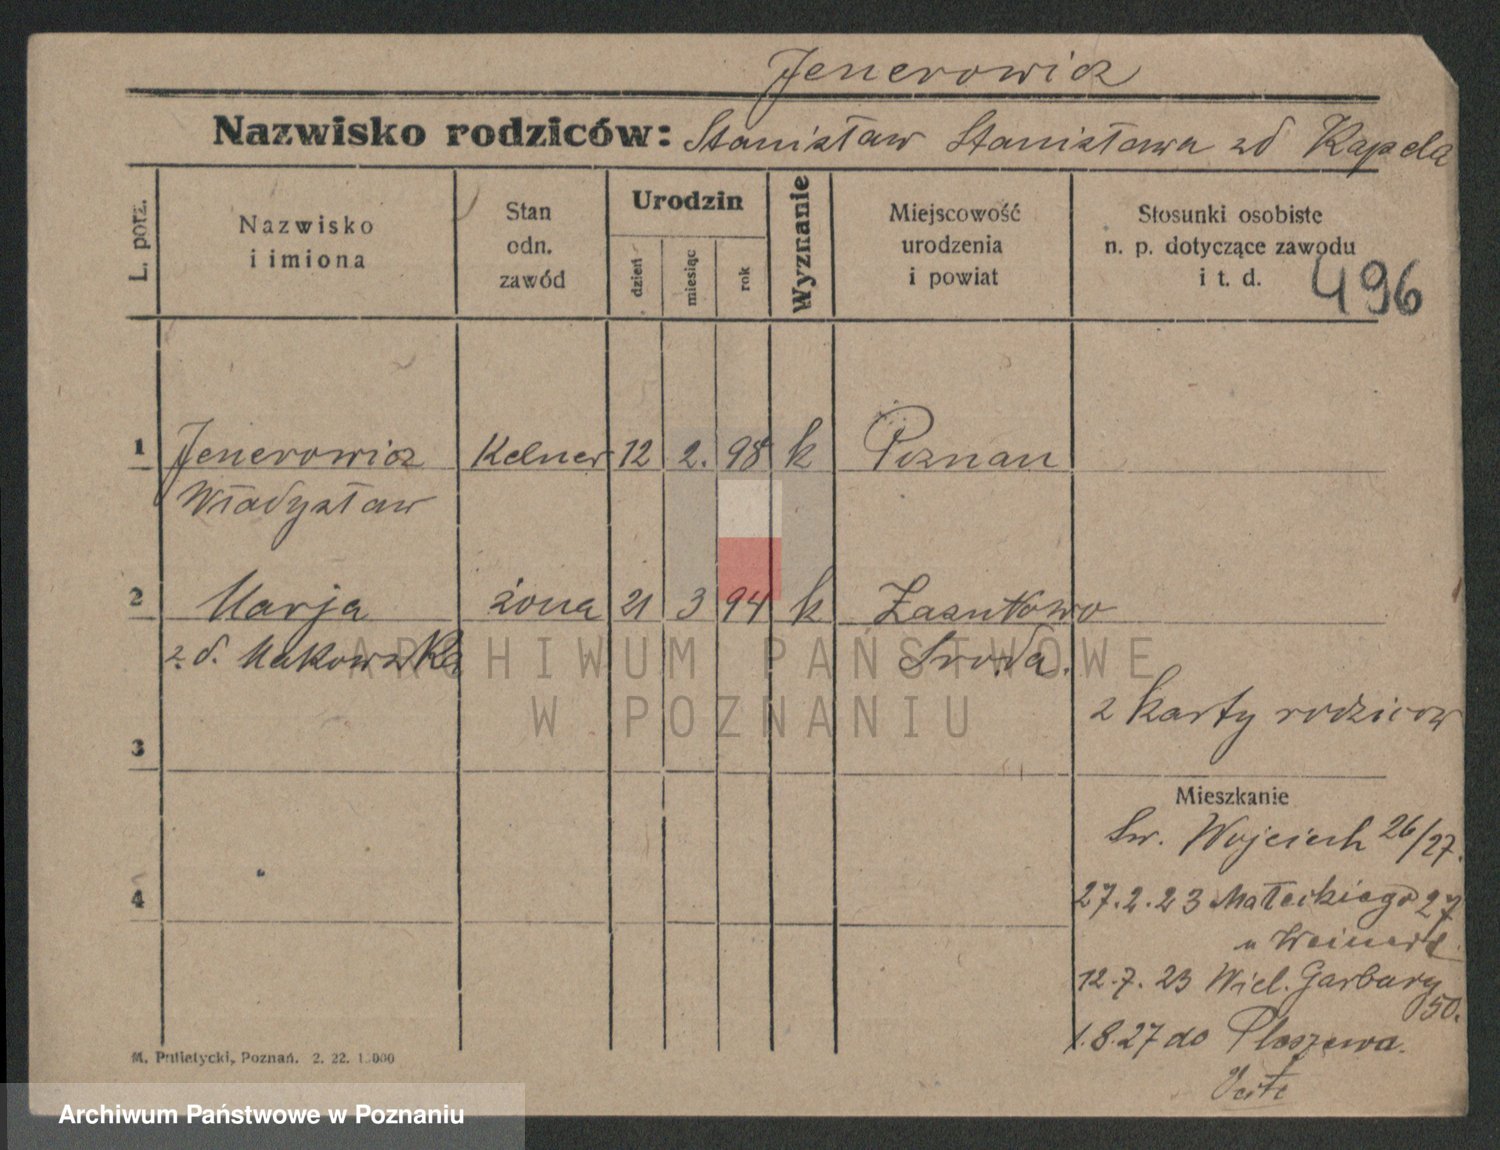 Jenerowicz
Nazwisko rodziców: Stanisław Stanisława zd Kapela
L. porz.
Nazwisko
i imiona
Stan
odn.
zawód
Urodzin
dzień
miesiąc
rok
Wyznanie
Miejscowość
urodzenia
i powiat
Stosunki osobiste
n. p. dotyczące zawodu
i t. d.
496
1 Jenerowicz Kelner 12 2. 98 k Poznań
Władysław
2 Marja żona 21 3 94 k Zasutowo
z d. Makowska Środa.
ARCHIWUM PAŃSTWOWE
W POZNANIU
2 karty rodziców
3
Mieszkanie
Św. Wojciech 26/27.
27.2.23 Małeckiego 27
u
4
12.7.23 Wiel. Garbary
50.
1.8.27 do Pleszewa.
M. Putiatycki, Poznań. 2. 22.
Archiwum Państwowe w Poznaniu